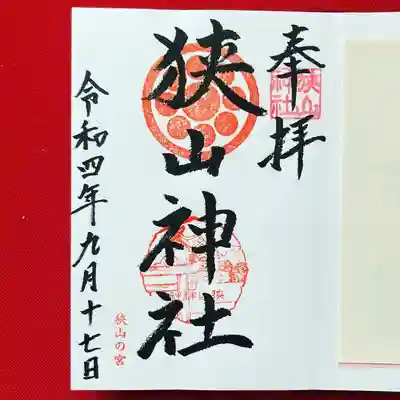 奉拝
狭山神社
狭山神社
令和四年九月十七日
狭山の宮